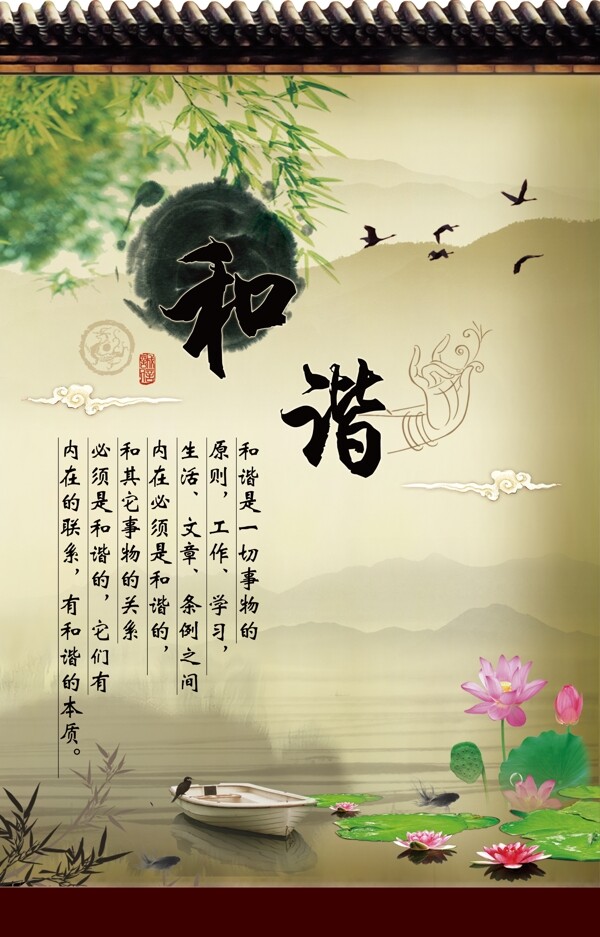 和谐
和谐是一切事物的
原则，工作、学习，
生活、文章、条例之间
内在必须是和谐的，
和其它事物的关系
必须是和谐的，它们有
内在的联系，有和谐的本质。